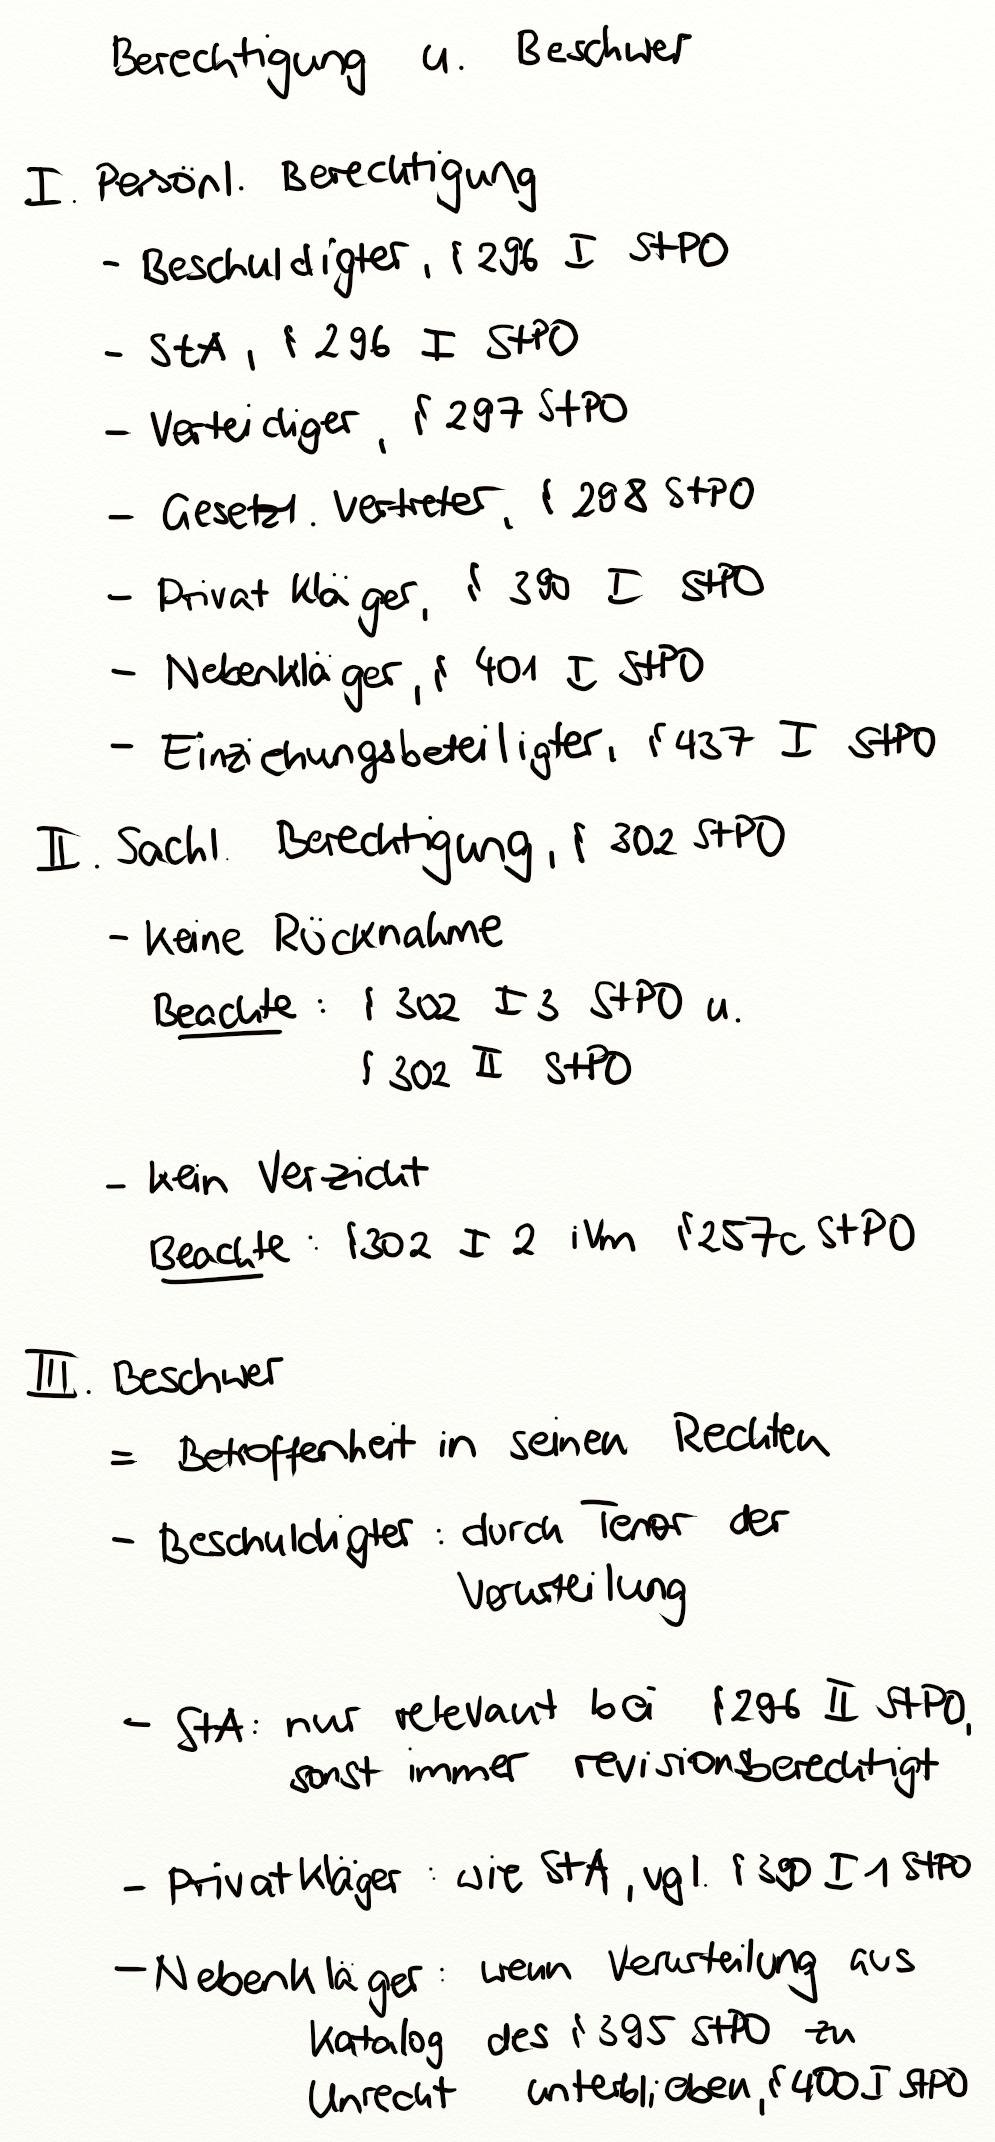 Berechtigung u. Beschwer
I. Persönl. Berechtigung
- Beschuldigter, § 296 I StPO
- StA, § 296 I StPO
- Verteidiger, § 297 StPO
- Gesetzl. Vertreter, § 298 StPO
- Privatkläger, § 390 I StPO
- Nebenkläger, § 401 I StPO
- Einziehungsbeteiligter, § 437 I StPO
II. Sachl. Berechtigung, § 302 StPO
- keine Rücknahme
Beachte: § 302 I 3 StPO u.
§ 302 II StPO
- kein Verzicht
Beachte: § 302 I 2 iVm § 257c StPO
III. Beschwer
= Betroffenheit in seinen Rechten
- Beschuldigter: durch Tenor der
Verurteilung
- StA: nur relevant bei § 296 II StPO,
sonst immer revisionsberechtigt
- Privatkläger: wie StA, vgl. § 390 I 1 StPO
- Nebenkläger: wenn Verurteilung aus
Katalog des § 395 StPO zu
Unrecht unterblieben, § 400 I StPO